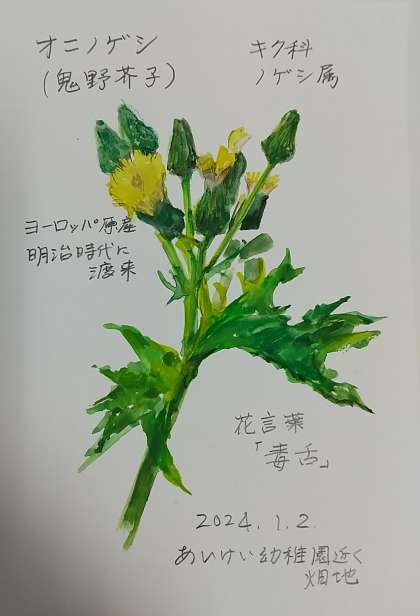 オニノゲシ
(鬼野芥子)
キク科
ノゲシ属
ヨーロッパ原産
明治時代に
渡来
花言葉
「毒舌」
2024.1.2.
あいけい幼稚園近く
畑地